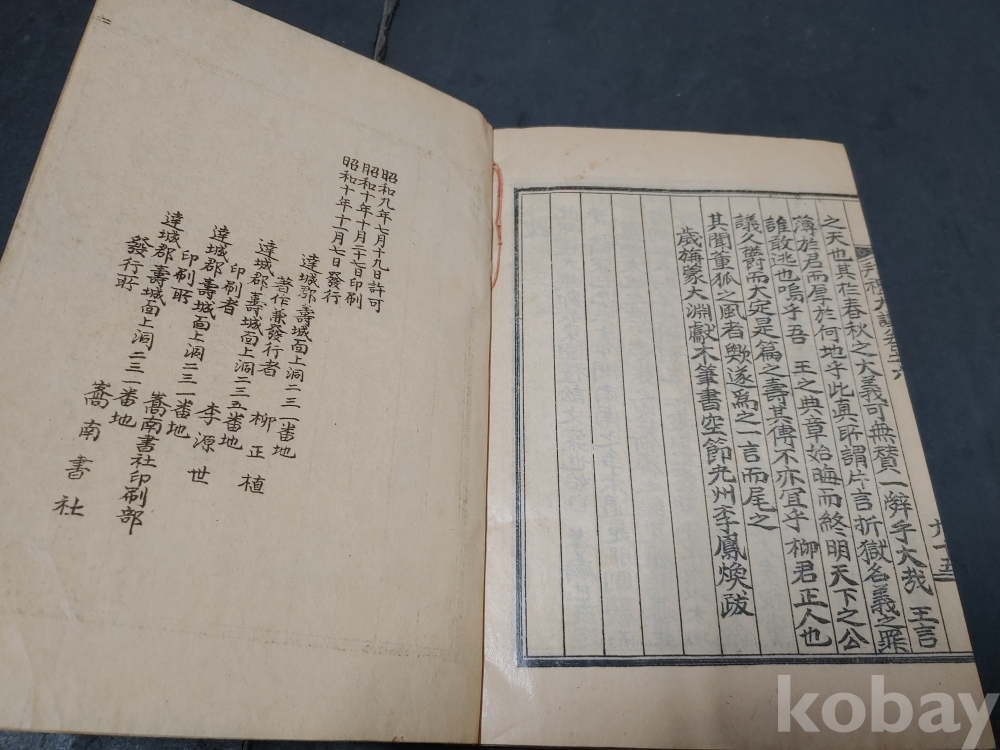 之天也其於春秋之大義可無賛一辭乎大哉 王言
薄於君而厚於何地乎此真所謂片言折獄名義之罪
誰敢逃也嗚乎吾 王之典章始晦而終明天下之公
議久欝而大定是篇之壽其傳不亦宜乎柳君正人也
其聞董狐之風者歟遂爲之一言而尾之
歲旃蒙大淵獻木筆書空節九州李鳳煥跋
九十五
昭和九年七月十九日許可
昭和十年十月三十七日印刷
昭和十年十一月七日發行
達城郡壽城面上洞二三一番地
著作兼發行者 柳正植
達城郡壽城面上洞二三五番地
印刷者 李源世
達城郡壽城面上洞二三一番地
印刷所 嵩南書社印刷部
達城郡壽城面上洞二三一番地
發行所 嵩南書社
kobay